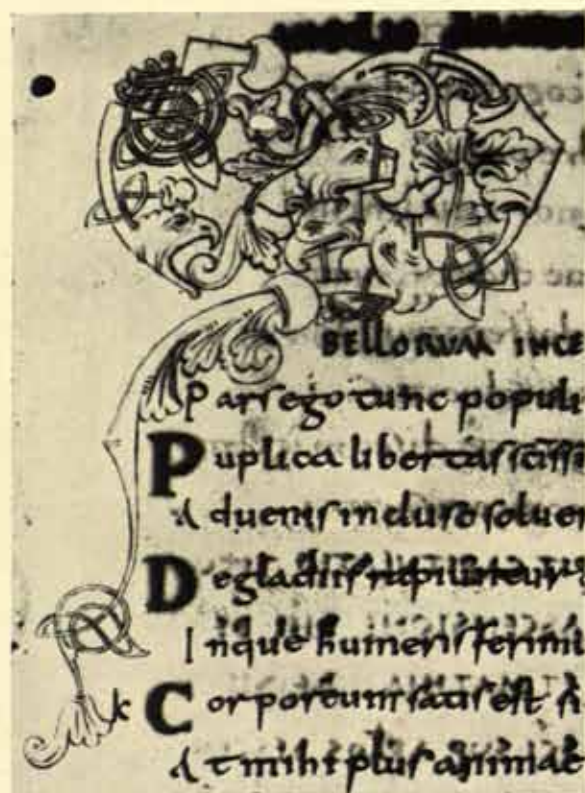 BELLORUM INCE
Pars ego tunc populi
Puplica libertas sciss
Aduenis in duro solue
De gladiis
Inque humeris ferimu
k Corpor tum satis est si
At mihi plus animae